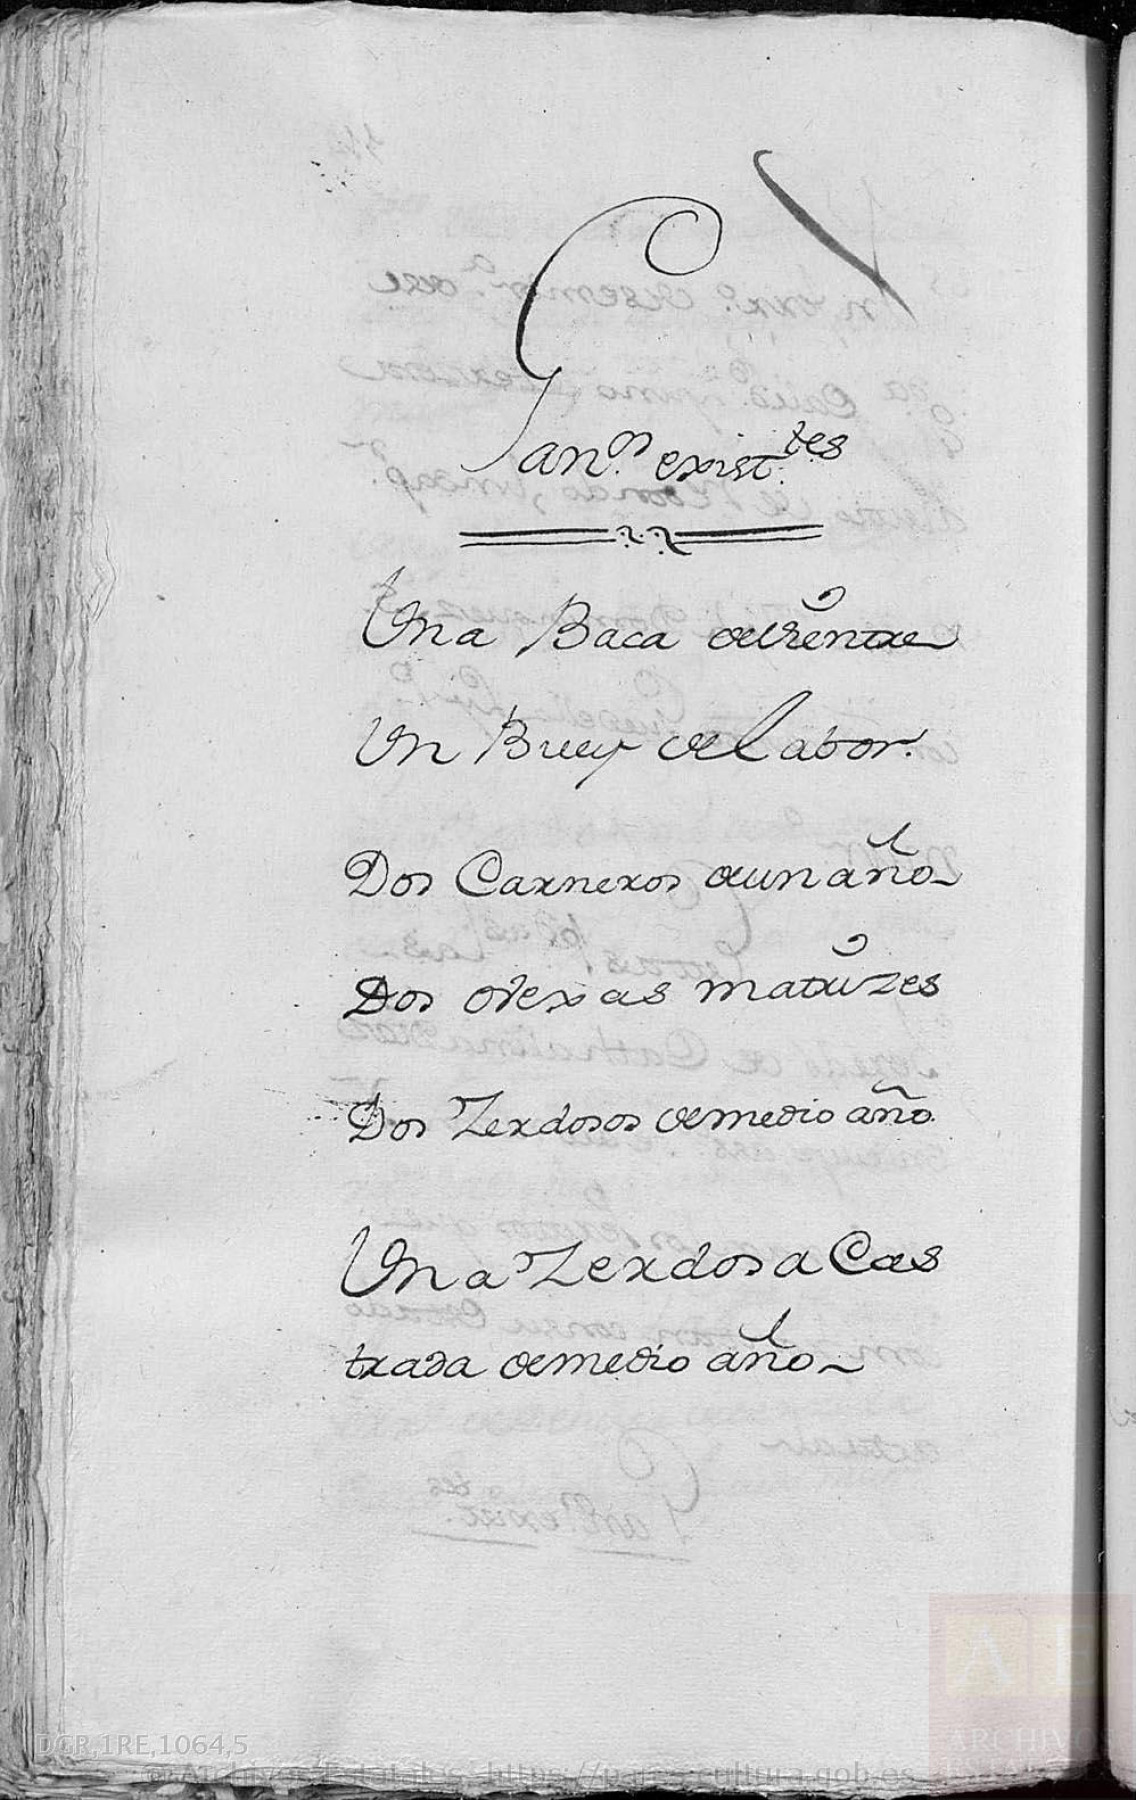 Gan.º exist.tes
Una Baca de Vientre
Un Buey de Labor.
Dos Carneros de un año
Dos Ovexas matrizes
Dos Zerdosos de medio año
Una Zerdosa Cas
trada de medio año
DGR,1RE,1064,5
© Archivos Estatales, https://pares.cultura.gob.es
AE
ARCHIVO